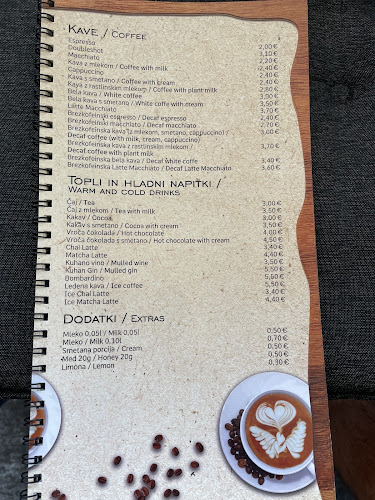 KAVE / COFFEE
Espresso 2,00 €
Doubleshot 3,10 €
Macchiato 2,20 €
Kava z mlekom / Coffee with milk 2,40 €
Cappuccino 2,40 €
Kava s smetano / Coffee with cream 2,40 €
Kava z rastlinskim mlekom / Coffee with plant milk
Bela kava / White coffee
Bela kava s smetano / White coffe with cream
Latte Macchiato
Brezkofeinski espresso / Decaf espresso
Brezkofeinski macchiato / Decaf macchiato
Brezkofeinska kava (z mlekom, smetano, cappuccino) /
Decaf coffee (with milk, cream, cappuccino)
Brezkofeinska kava z rastlinskim mlekom / 3,70 €
Decaf coffee with plant milk
Brezkofeinska bela kava / Decaf white coffe 3,40 €
Brezkofeinska Latte Macchiato / Decaf Latte Macchiato 3,60 €
TOPLI IN HLADNI NAPITKI /
WARM AND COLD DRINKS
Čaj / Tea 3,00 €
Čaj z mlekom / Tea with milk 3,50 €
Kakav / Cocos 3,00 €
Kakav s smetano / Cocos with cream 3,50 €
Vroča čokolada / Hot chocolate 4,00 €
Vroča čokolada s smetano / Hot chocolate with cream 4,50 €
Chai Latte 3,40 €
Matcha Latte 4,40 €
Kuhano vino / Mulled wine 3,50 €
Kuhan Gin / Mulled gin 5,50 €
Bombardino 5,60 €
Ledena kava / Ice coffee 5,50 €
Ice Chai Latte 3,40 €
Ice Matcha Latte 4,40 €
DODATKI / EXTRAS
Mleko 0,05l / Milk 0,05l 0,50 €
Mleko / Milk 0,10l 0,70 €
Smetana porcija / Cream 0,50 €
Med 20g / Honey 20g 0,50 €
Limona / Lemon 0,30 €